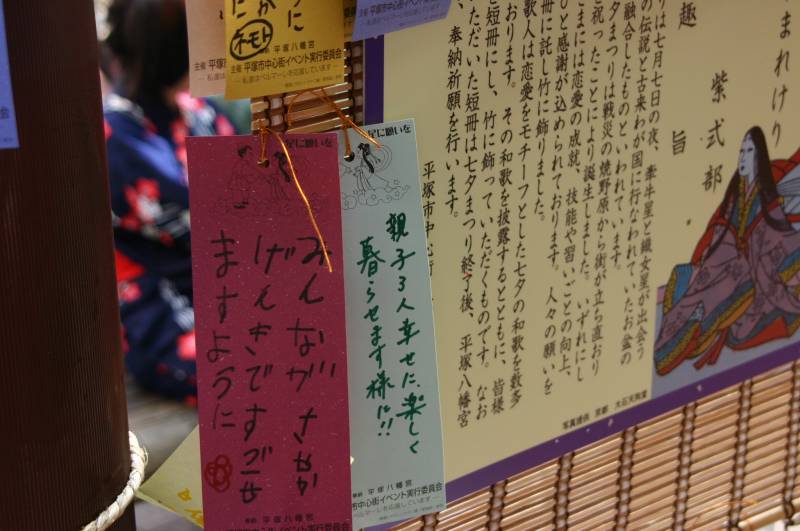 まれけり
紫式部
趣
旨
は七月七日の夜、牽牛星と織女星が出会う
の伝説と古来わが国に行なわれていたお盆の
融合したものといわれています。
夕まつりは戦災の焼野原から街が立ち直おり
と祝ったことにより誕生しました。いずれにし
まには恋愛の成就、技能や習いごとの向上、
ひと感謝が込められております。人々の願いを
冊に託し竹に飾りました。
歌人は恋愛をモチーフとした七夕の和歌を数多
おります。その和歌を披露するとともに、皆様
短冊にし、竹に飾っていただくものです。なお
ただいた短冊は七夕まつり終了後、平塚八幡宮
、奉納祈願を行います。
平塚市中心街
写真提供 京都 大石天狗堂
星に願いを
親子3人幸せに、楽しく
暮らせます様に!!
平塚八幡宮
市中心街イベント実行委員会
星に願いを
みんながさかな
げんきですごせ
ますように
平塚八幡宮
平塚市中心街イベント実行委員会
ように
ネモト
平塚八幡宮
主催 平塚市中心街イベント実行委員会
私達はベルマーレを応援しています